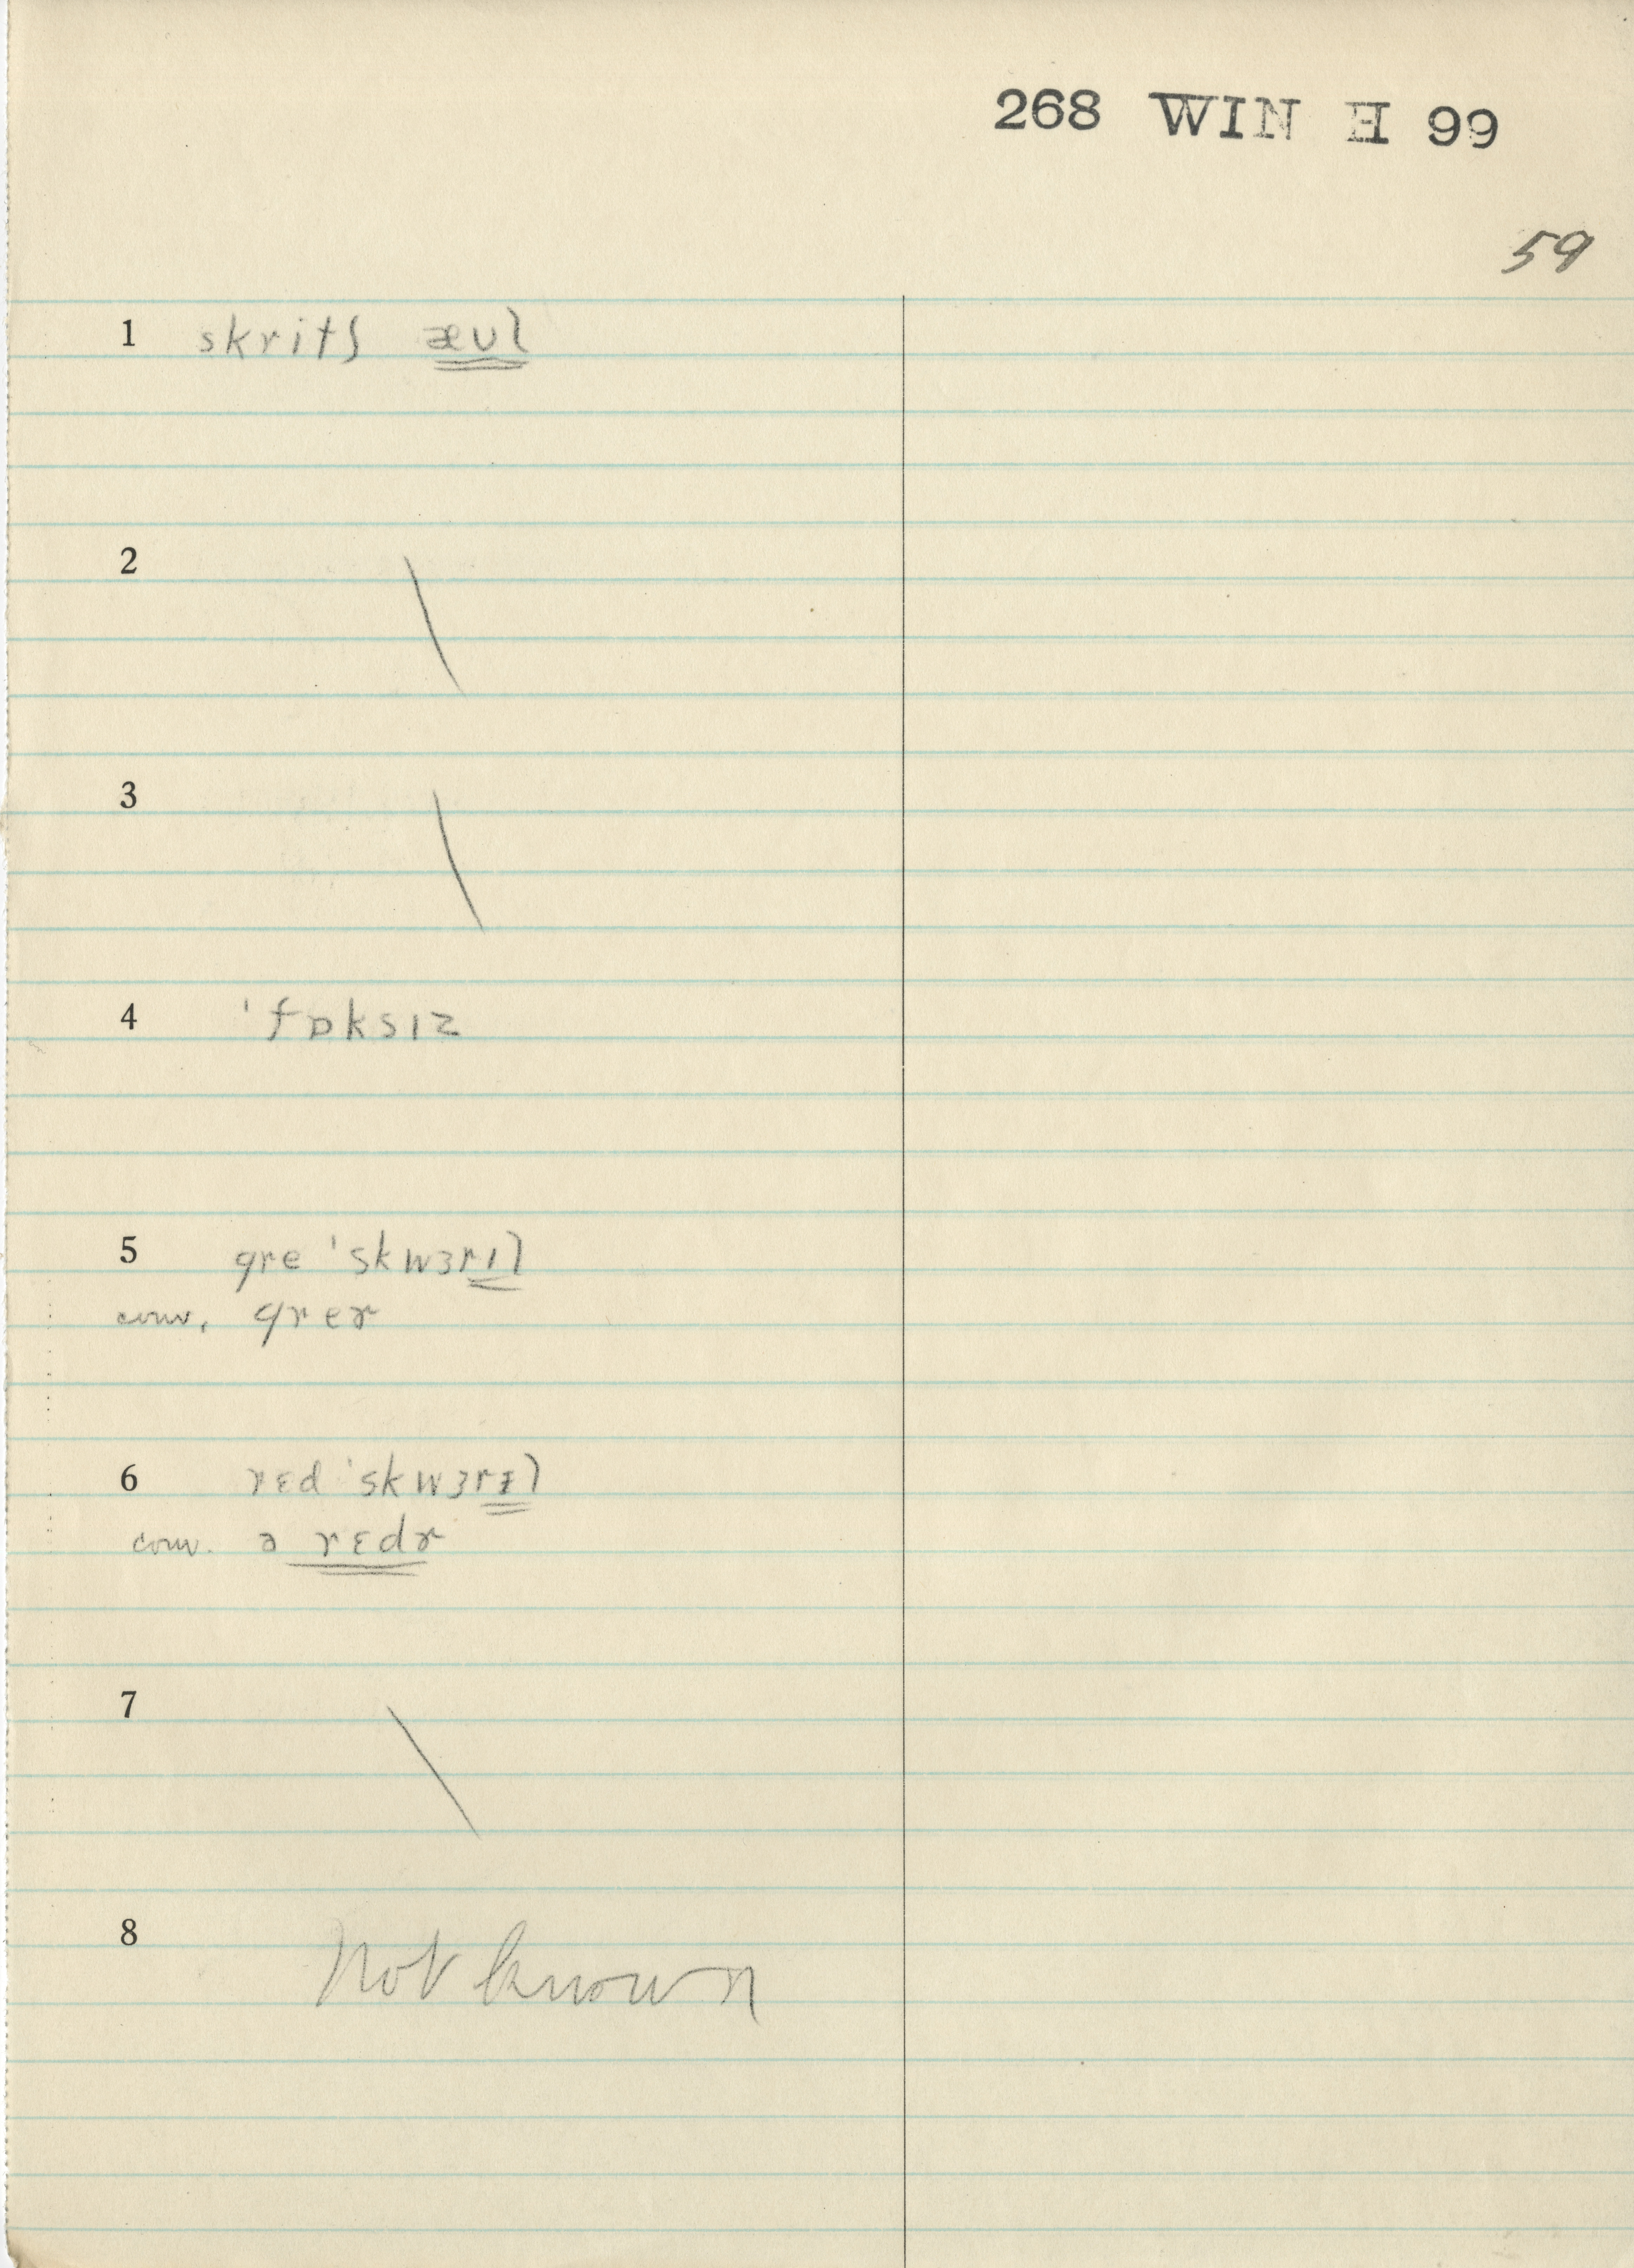 268 WIN H 99
59
1 skritʃ æʊl
2
3
4 ˈfɒksɪz
5 gre ˈskwɜrɪl
conv. grɛɚ
6 rɛd ˈskwɜrɪl
conv. ə rɛdɚ
7
8 Not known